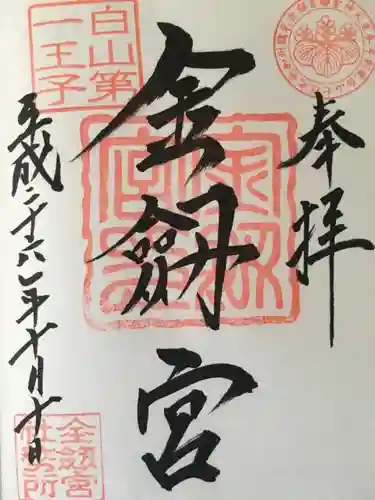 奉拝
金劔宮
平成二十六年十月十日
白山第
一王子
金劔宮
社務所